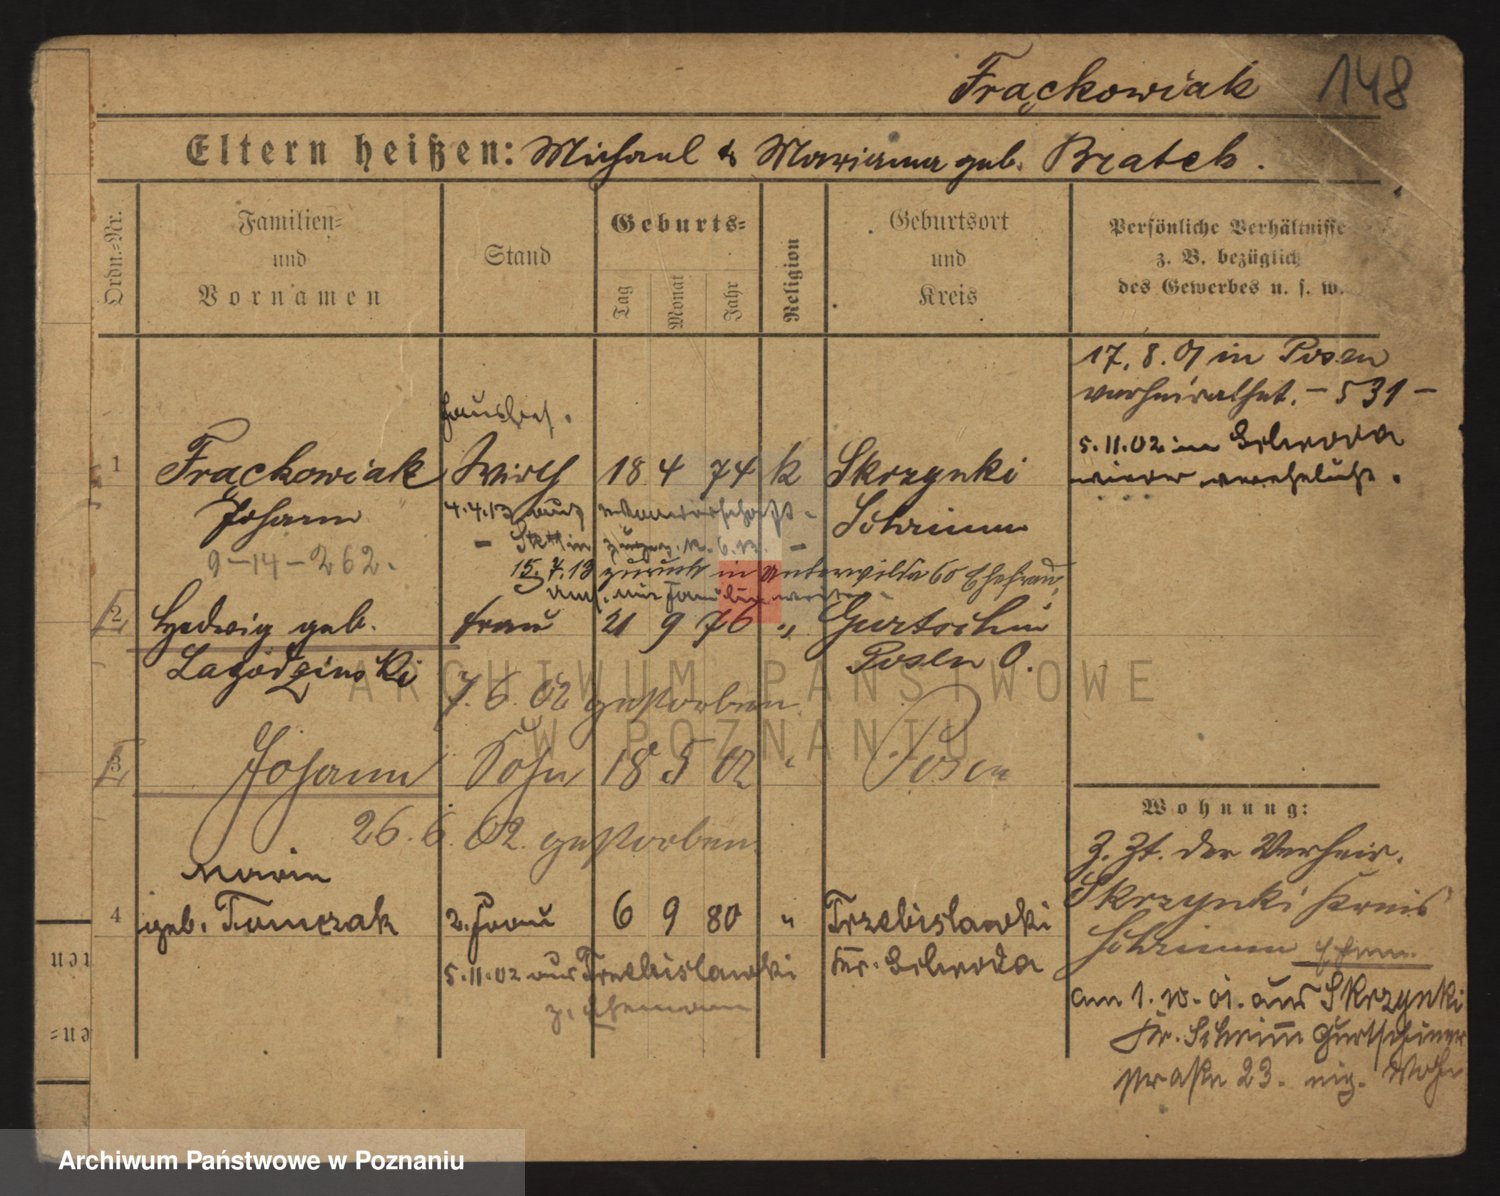 Frąckowiak 148
Eltern heißen: Michael & Marianna geb. Bratek.
Ordn.=Nr.
Familien=
und
Vornamen
Stand
Geburts=
Tag
Monat
Jahr
Religion
Geburtsort
und
Kreis
Persönliche Verhältnisse
z. B. bezüglich
des Gewerbes u. s. w.
17. 8. 01 in Posen
verheirathet. – 531 –
5.11.02 in Schroda
wieder verehelicht.
1 Frąckowiak Wirth 18 4 74 k Skrzynki
Johann
Schrimm
9-14-262.
4.4.13 aus
15.7.13 zurück in Unterwilda 60 Ehefrau
2 Hedwig geb. Frau 21 9 76 " Gurtschin
Lagodzinski Posen O.
7.6.02 gestorben
3 Johann Sohn 18 5 02 " Posen
26.6.02. gestorben
Marie
4 geb. Tomczak 2. Frau 6 9 80 " Trzebislawki
Kr. Schroda
5.11.02 aus Trzebislawki
z. Ehemann
Wohnung:
Z. Zt. der Verheir.
Skrzynki Kreis
Schrimm
am 1.10.01. aus Skrzynki
Kr. Schrimm Gurtschiner
straße 23. eig. Wohn
ARCHIWUM PAŃSTWOWE
W POZNANIU
ten
en=
Archiwum Państwowe w Poznaniu